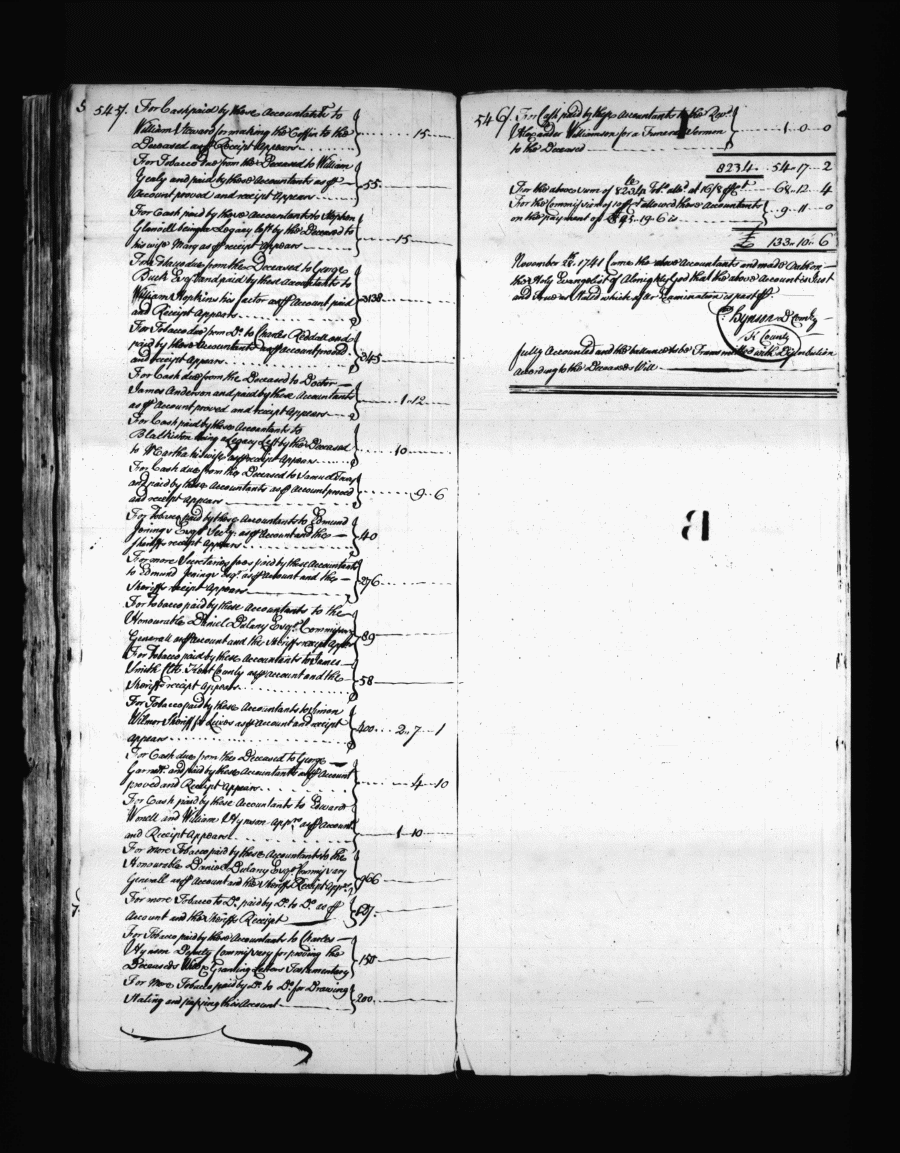 5
547. For Cash paid by these Accountants to
William Steward for making the Coffin to the
Deceased as ⅌ Receipt Appears - - - 15 - -
For Tobacco due from the Deceased to William
Gealy and paid by these Accountants as ⅌
Account proved and receipt Appears - - 55 - -
For Cash paid by these Accountants to Stephen
Glanvill being a Legacy left by the Deceased to
his wife Mary as ⅌ receipt Appears - - 15 - -
For Tobacco due from the Deceased to George
Buck Esqr. and paid by these Accountants to
William Hopkins his factor as ⅌ Account paid
and Receipt Appears - - 3138 - -
For Tobacco due from Do. to Charles Reddall and
paid by these Accountants as ⅌ account proved
and receipt Appears - - 345 - -
For Cash due from the Deceased to Doctor
James Anderson and paid by these Accountants
as ⅌ Account proved and receipt Appears - - 1 " 12 - -
For Cash paid by these Accountants to
Blakiston being a Legacy Left by the Deceased
to Martha his wife as ⅌ receipt Appears - - 10 - -
For Cash due from the Deceased to Samuel
and paid by these Accountants as ⅌ Account proved
and receipt Appears - - 9 " 6
For Tobacco paid by these Accountants to Edmund
Jenings Esqr. Secry. as ⅌ account and the
Sheriffs receipt Appears - - 40
For more Secretaries fees paid by these Accountants
to Edmund Jenings Esqr. as ⅌ Account and the
Sheriffs receipt Appears - - 276 - -
For tobacco paid by these Accountants to the
Honourable Daniel Dulany Esqr. Commissary
Generall as ⅌ Account and the Sheriffs receipt Appears 89 - -
For Tobacco paid by these Accountants to James
Smith Clk. Kent County as ⅌ account and the
Sheriffs receipt Appears - - 58 - -
For Tobacco paid by these Accountants to Simon
Wilmer Sheriff for Levies as ⅌ account and receipt
appears - - 400 - - 2 " 7 - 1
For Cash due from the Deceased to George
Garnett and paid by these Accountants as ⅌ Account
proved and Receipt Appears - - 4 - 10
For Cash paid by these Accountants to Edward
Worrell and William Hynson Apprs. as ⅌ Account
and Receipt Appears - - 1 - 10 - -
For more Tobacco paid by these Accountants to the
Honourable Daniel Dulany Esqr. Commissary
Generall as ⅌ Account and the Sheriffs Receipt Apprs. 966 - -
For more Tobacco to Do. paid by Do. to Do. as ⅌
Account and the Sheriffs Receipt - - 67 - -
For Tobacco paid by these Accountants to Charles
Hynson Deputy Commissary for proving the
Deceaseds Will & Granting Letters Testamentary 150 - -
For More Tobacco paid by Do. to Do. for Drawing
Stating and passing this Account - - 200 - -
546. For Cash paid by these Accountants to the Revd.
Alexander Williamson for a Funeral Sermon
to the Deceased - - 1 " 0 - 0
8234 - 54 " 17 - 2
For the above sum of 8234 lb Tobo. alld. at 16/8 ⅌ Ct. - 68 " 12 - 4
For the Commission of ⅌ Ct. allowed these Accountants
on the payment of £95 " 19 " 6 is - 9 " 11 - 0
£ 133 " 10 " 6
November 28th. 1741 Came the above Accountants and made Oath on
the Holy Evangelist of Almighty God that the above Account is Just
and True as Stated which after Examination is past ⅌
Hynson D Comry
K County
fully Accounted and the ballance to be Transmitted with Distribution
According to the Deceaseds Will
B